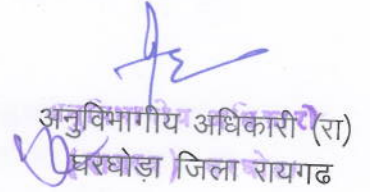 अनुविभागीय अधिकारी (रा)
घरघोड़ा जिला रायगढ